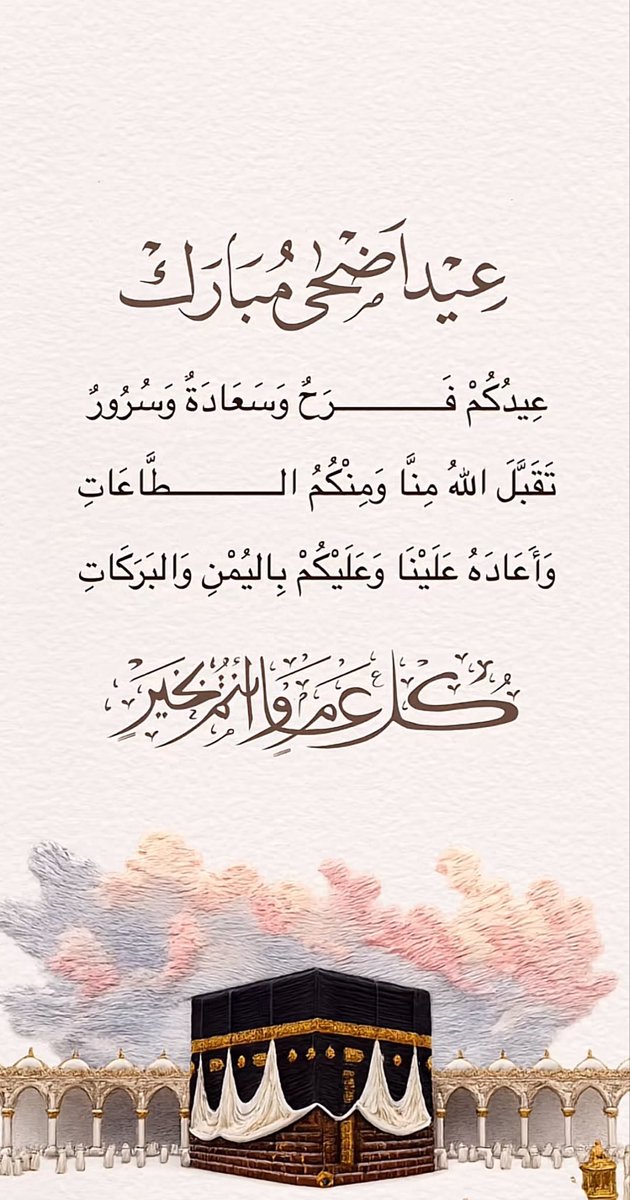 عِيْد اَضْحَى مُبَارَك
عِيدُكُمْ فَـــــــرَحٌ وَسَعَادَةٌ وَسُرُورٌ
تَقَبَّلَ اللهُ مِنَّا وَمِنْكُمُ الـــــــطَّاعَاتِ
وَأَعَادَهُ عَلَيْنَا وَعَلَيْكُمْ بِاليُمْنِ وَالبَرَكَاتِ
كُل عَام وَانتُم بِخَيْرٍ